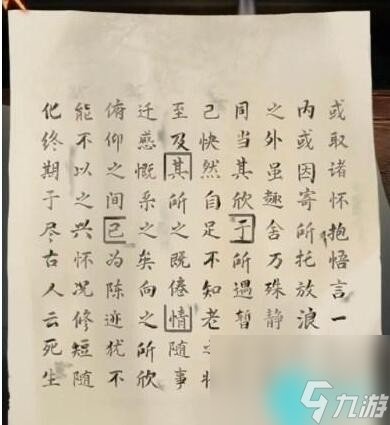 或取诸怀抱悟言一
内或因寄所托放浪
之外虽趣舍万殊静
同当其欣于所遇暂
己快然自足不知老
至及其所之既倦情随事
迁感慨系之矣向之所欣
俯仰之间已为陈迹犹不
能不以之兴怀况修短随
化终期于尽古人云死生
九游